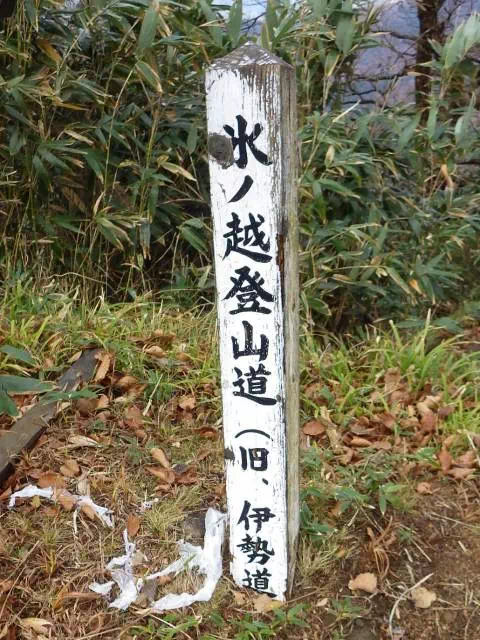 氷ノ越登山道(旧、伊勢道